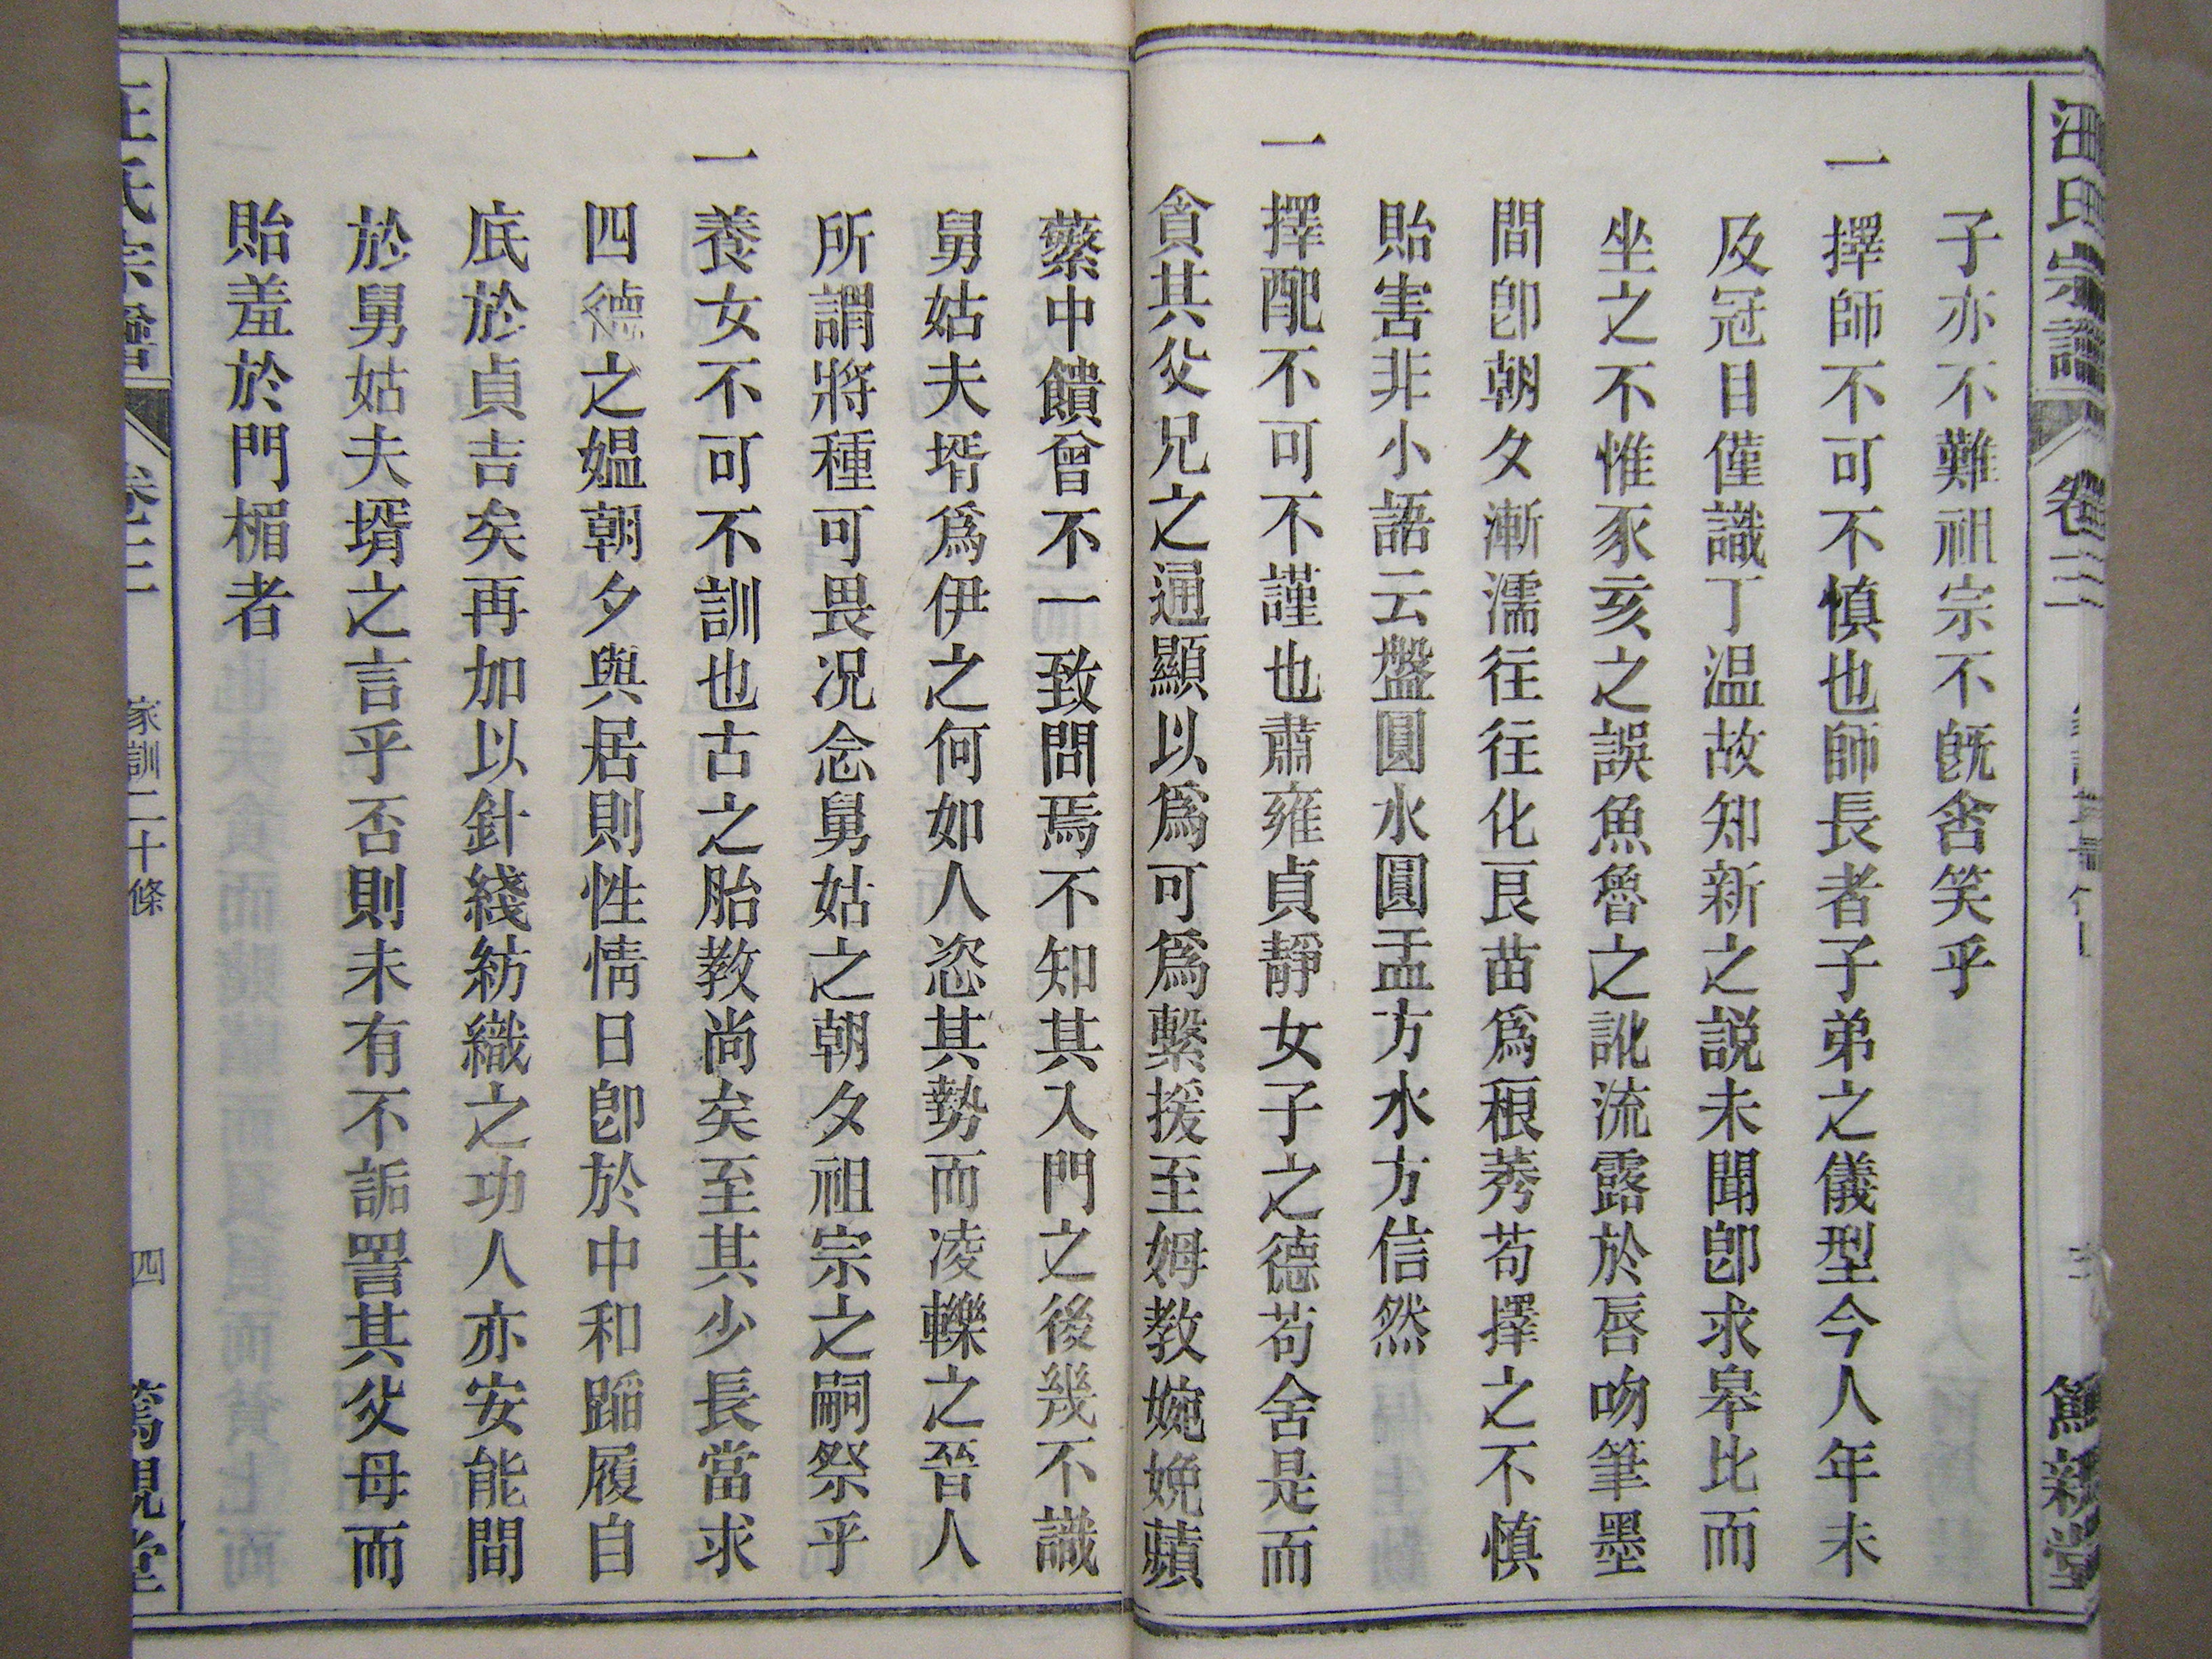 汪氏宗譜 卷三 篤親堂
子亦不難祖宗不旣含笑乎
一擇師不可不慎也師長者子弟之儀型今人年未
及冠目僅識丁温故知新之説未聞卽求皋比而
坐之不惟豕亥之誤魚魯之訛流露於唇吻筆墨
間卽朝夕漸濡往往化良苗爲稂莠苟擇之不慎
貽害非小語云盤圓水圓盂方水方信然
一擇配不可不謹也肅雍貞靜女子之德苟舍是而
貪其父兄之通顯以爲可爲繫援至姆教婉娩蘋
蘩中饋曾不一致問焉不知其入門之後幾不識
舅姑夫壻爲伊之何如人恣其勢而凌轢之晉人
所謂將種可畏况念舅姑之朝夕祖宗之嗣祭乎
一養女不可不訓也古之胎教尚矣至其少長當求
四德之媪朝夕與居則性情日卽於中和蹈履自
底於貞吉矣再加以針綫紡織之功人亦安能間
於舅姑夫壻之言乎否則未有不詬詈其父母而
貽羞於門楣者
汪氏宗譜 卷三 家訓二十條 四 篤親堂